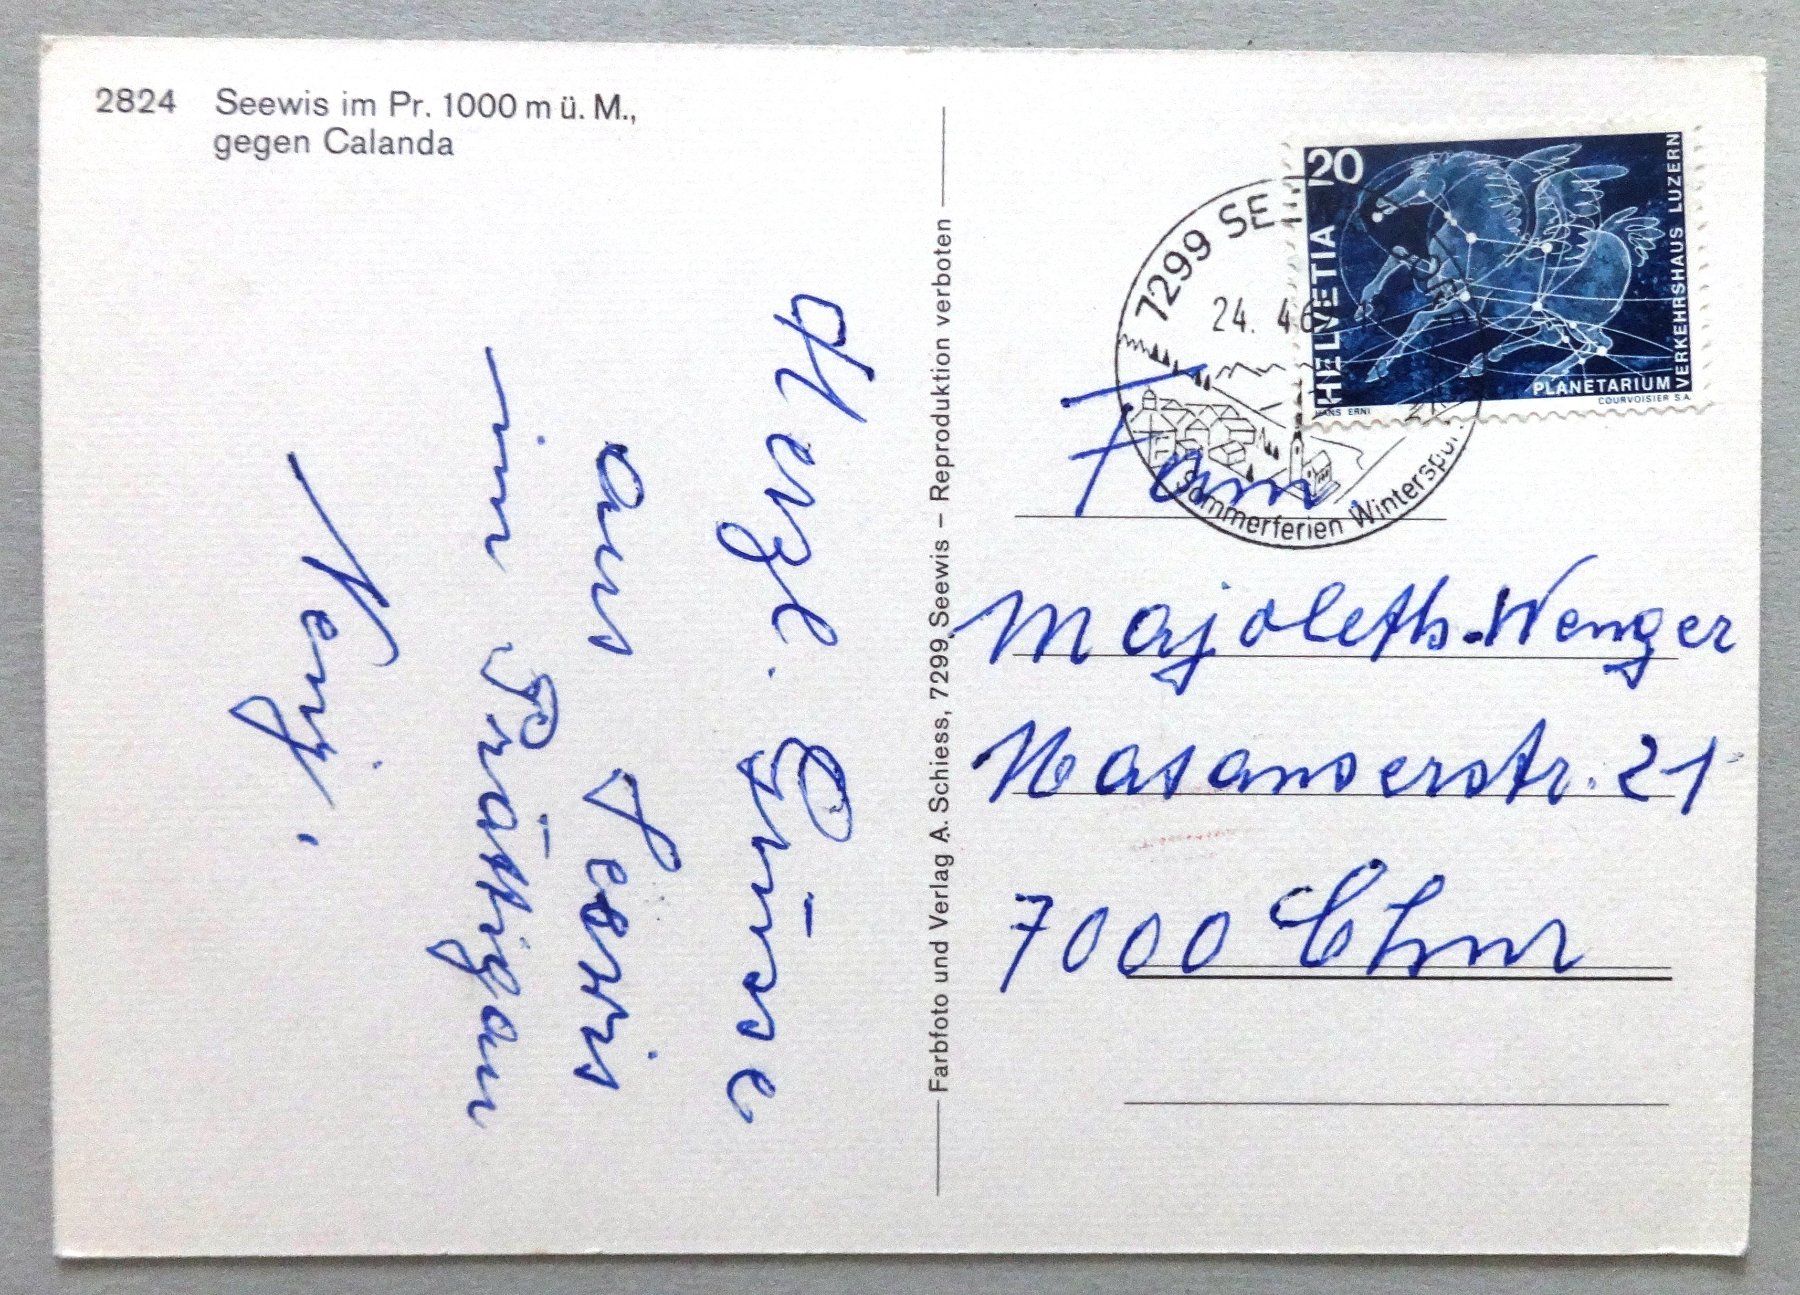 2824 Seewis im Pr. 1000 m ü. M.,
gegen Calanda
Herzl. Grüsse
aus Seewis
im Prättigau
Farbfoto und Verlag A. Schiess, 7299 Seewis – Reproduktion verboten
20
HELVETIA
VERKEHRSHAUS LUZERN
PLANETARIUM
HANS ERNI
COURVOISIER S.A.
7299 SE
24. 4 6
Sommerferien Winterspor
Fam.
Majoleth-Wenger
Masanserstr. 21
7000 Chur